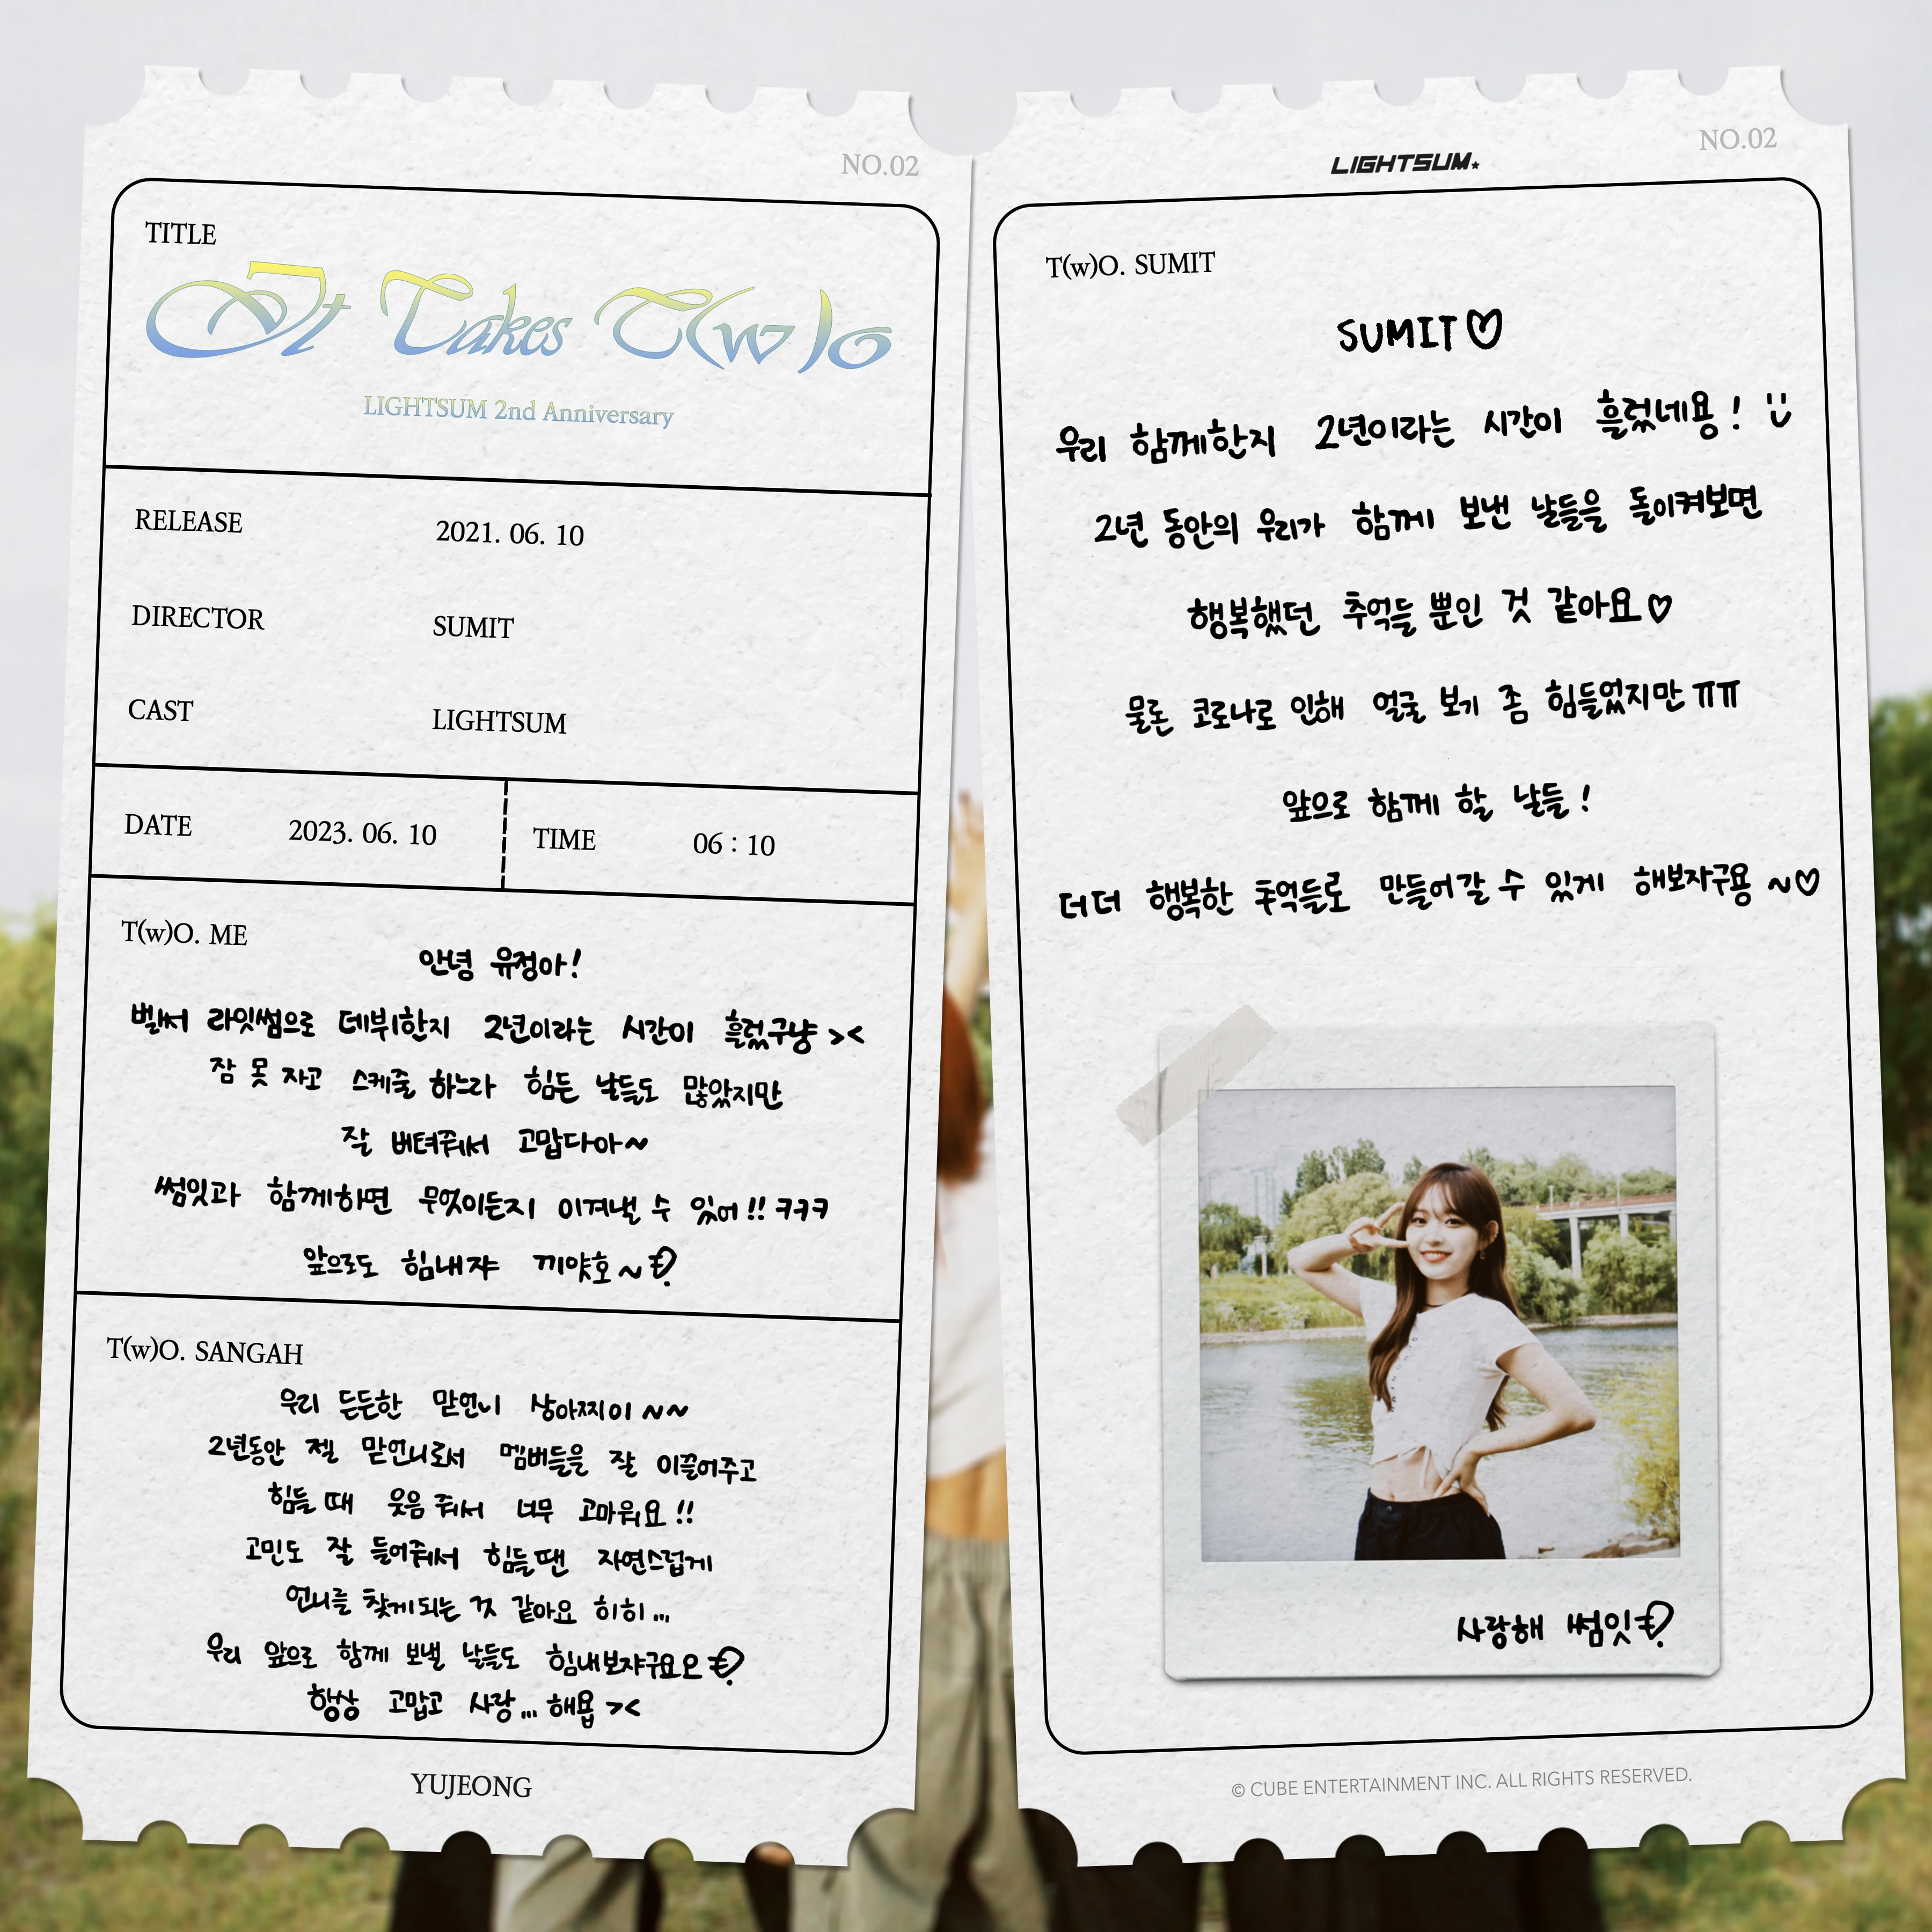 NO.02
TITLE
It Takes T(w)o
LIGHTSUM 2nd Anniversary
RELEASE 2021. 06. 10
DIRECTOR SUMIT
CAST LIGHTSUM
DATE 2023. 06. 10 TIME 06 : 10
T(w)O. ME
안녕 유정아!
벌써 라잇썸으로 데뷔한지 2년이라는 시간이 흘렀구냥 ><
잠 못 자고 스케줄 하느라 힘든 날들도 많았지만
잘 버텨줘서 고맙다아~
썸잇과 함께하면 무엇이든지 이겨낼 수 있어!! ㅋㅋㅋ
앞으로도 힘내쟈 끼얏호~
T(w)O. SANGAH
우리 든든한 맏언니 상아찌이~~
2년동안 젤 맏언니로서 멤버들을 잘 이끌어주고
힘들 때 웃음 줘서 너무 고마워요!!
고민도 잘 들어줘서 힘들땐 자연스럽게
언니를 찾게되는 것 같아요 히히...
우리 앞으로 함께 보낼 날들도 힘내보쟈구요오
항상 고맙고 사랑...해욥 ><
YUJEONG
LIGHTSUM
NO.02
T(w)O. SUMIT
SUMIT♡
우리 함께한지 2년이라는 시간이 흘렀네용! :)
2년 동안의 우리가 함께 보낸 날들을 돌이켜보면
행복했던 추억들 뿐인 것 같아요♡
물론 코로나로 인해 얼굴 보기 좀 힘들었지만 ㅠㅠ
앞으로 함께 할 날들!
더더 행복한 추억들로 만들어갈 수 있게 해보자구용 ~♡
사랑해 썸잇
© CUBE ENTERTAINMENT INC. ALL RIGHTS RESERVED.